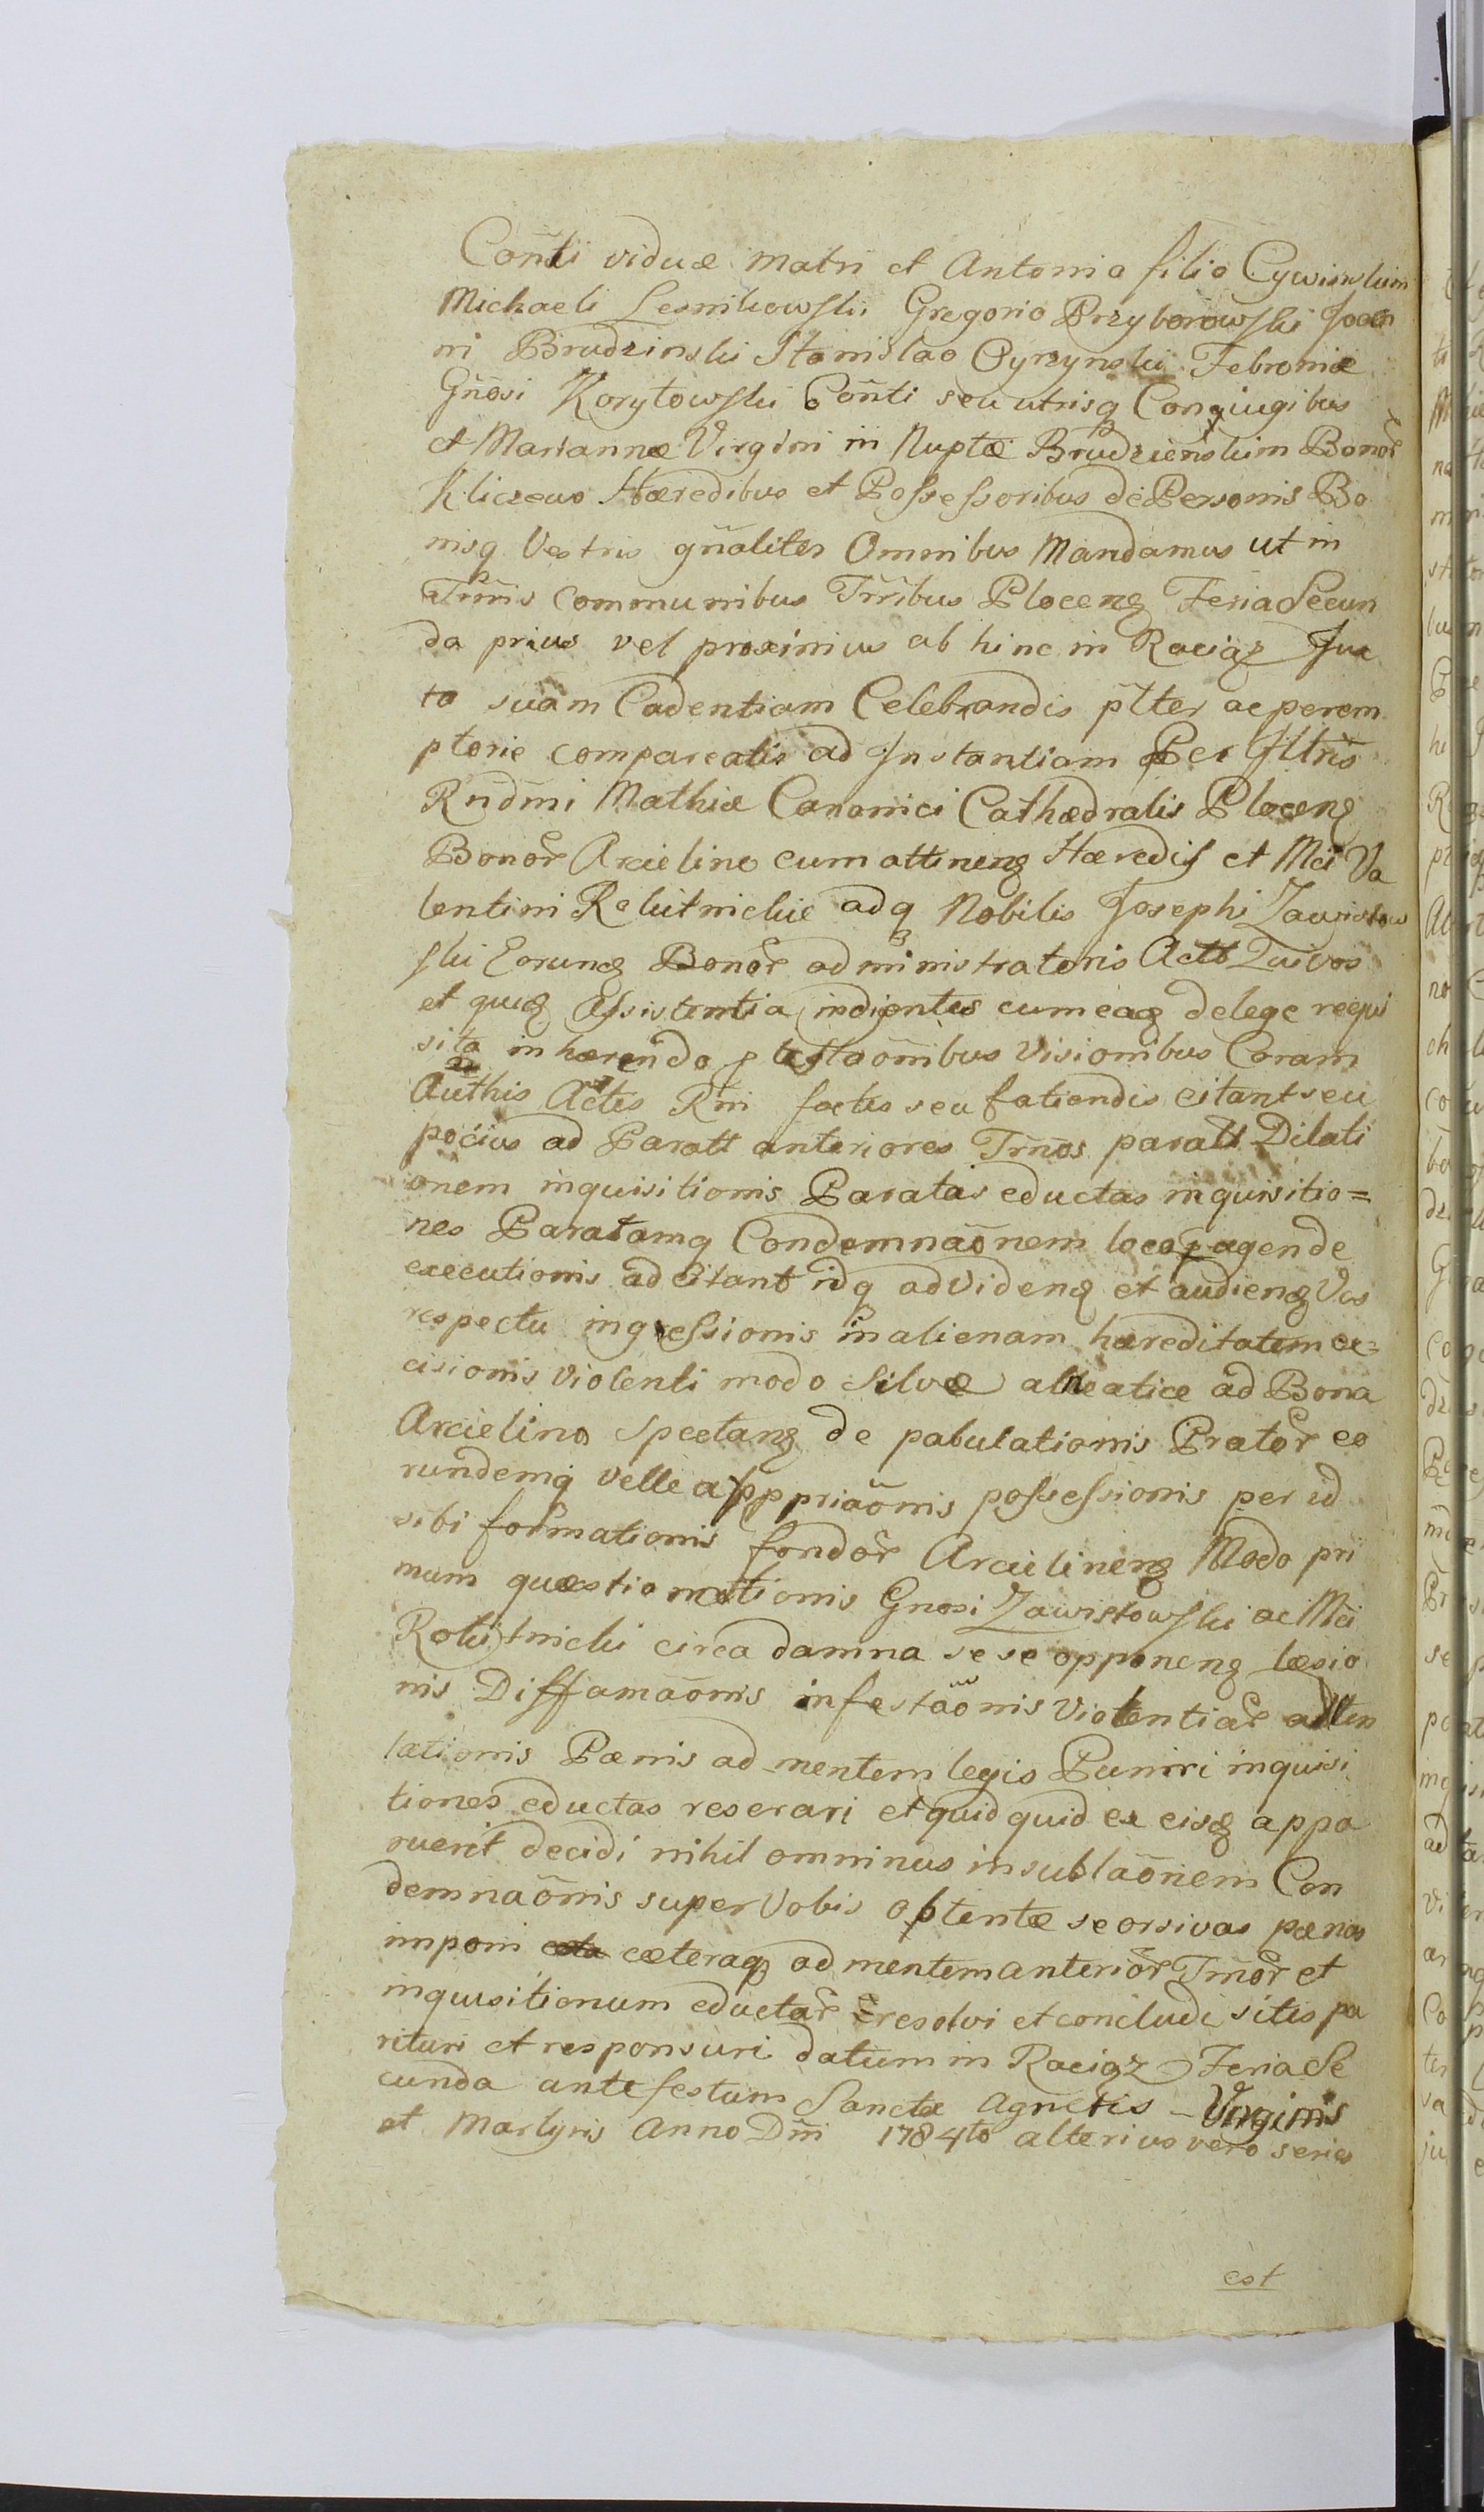 Con̄ti viduæ matri et Antonio filio Cywinskim
Michaeli Lesnikowski Gregorio Przyborowski Joan
ni Brudzinski Stanislao Pyrzynski Febroniæ
Gn̄osi Korytowski Con̄ti seu utrisq Conjugibus
et Mariannæ Virgini in Nuptæ Brudzienskim Bonor̄
Kliczewo Hæredibus et Possessoribus de Personis Bo
nisq Vestris gn̄aliter Omnibus Mandamus ut in
Tm̄is communibus Tr̄ribus Plocenꝫ Feria Secun
da prius vel proximius ab hinc in Raciąz Jux
ta suam Cadentiam Celebrandis p̄lter ac perem
ptorie compareatis ad Instantiam Per Illtris
Rn̄dmi Mathiæ Canonici Cathædralis Plocenꝫ
Bonor̄ Arcielino cum attinenꝫ Hæredis et Mci Va
lentini Rokitnickie adq Nobilis Josephi Zawistow
ski Eorunꝫ Bonor̄ administratoris Actt Qui vos
et quiꝫ Assistentia indigentes cum eaꝫ de lege requi
sita inhærendo ꝑtestaōnibus Visionibus Coram
Authis Actis Rn̄i factis seu fatiendis citant seu
pocius ad Paratt anteriores Tr̄nos paratt Dilati
onem inquisitionis Paratas eductas inquisitio=
nes Paratamq Condemnaōnem loco pagende
executionis adcitant idq ad Videnꝫ et audienꝫ Vos
respectu ingressionis in alienam hæreditatem ex=
cisionis violenti modo Silvæ alneatice ad Bona
Arcielino spectanꝫ de pabulationis Prator̄ eo
rundemq velle appropriaōnis possessionis per id
sibi formationis fondor̄ Arcielinenꝫ Modo pri
mum quæstionationis Gnosi Zawistowski ac Mci
Rokitnicki circa damna sese opponenꝫ læsio
nis Diffamaōnis infestaōnis Violentiar̄ atten
tationis Pænis ad mentem legis Puniri inquisi
tiones eductas reserari et quid quid ex eisꝫ appa
ruerit decidi nihil omninus in sublaōnem Con
demnaōnis super Vobis obtentæ seorsivas pænas
imponi cæteraqꝫ ad mentem anterior̄ Tmor̄ et
inquisitionum eductar̄ resolvi et concludi sitis pa
rituri et responsuri datum in Raciąz Feria Se
cunda ante festum Sanctæ Agnetis Virginis
et Martyris Anno Dn̄i 1784to alterius vero series
est